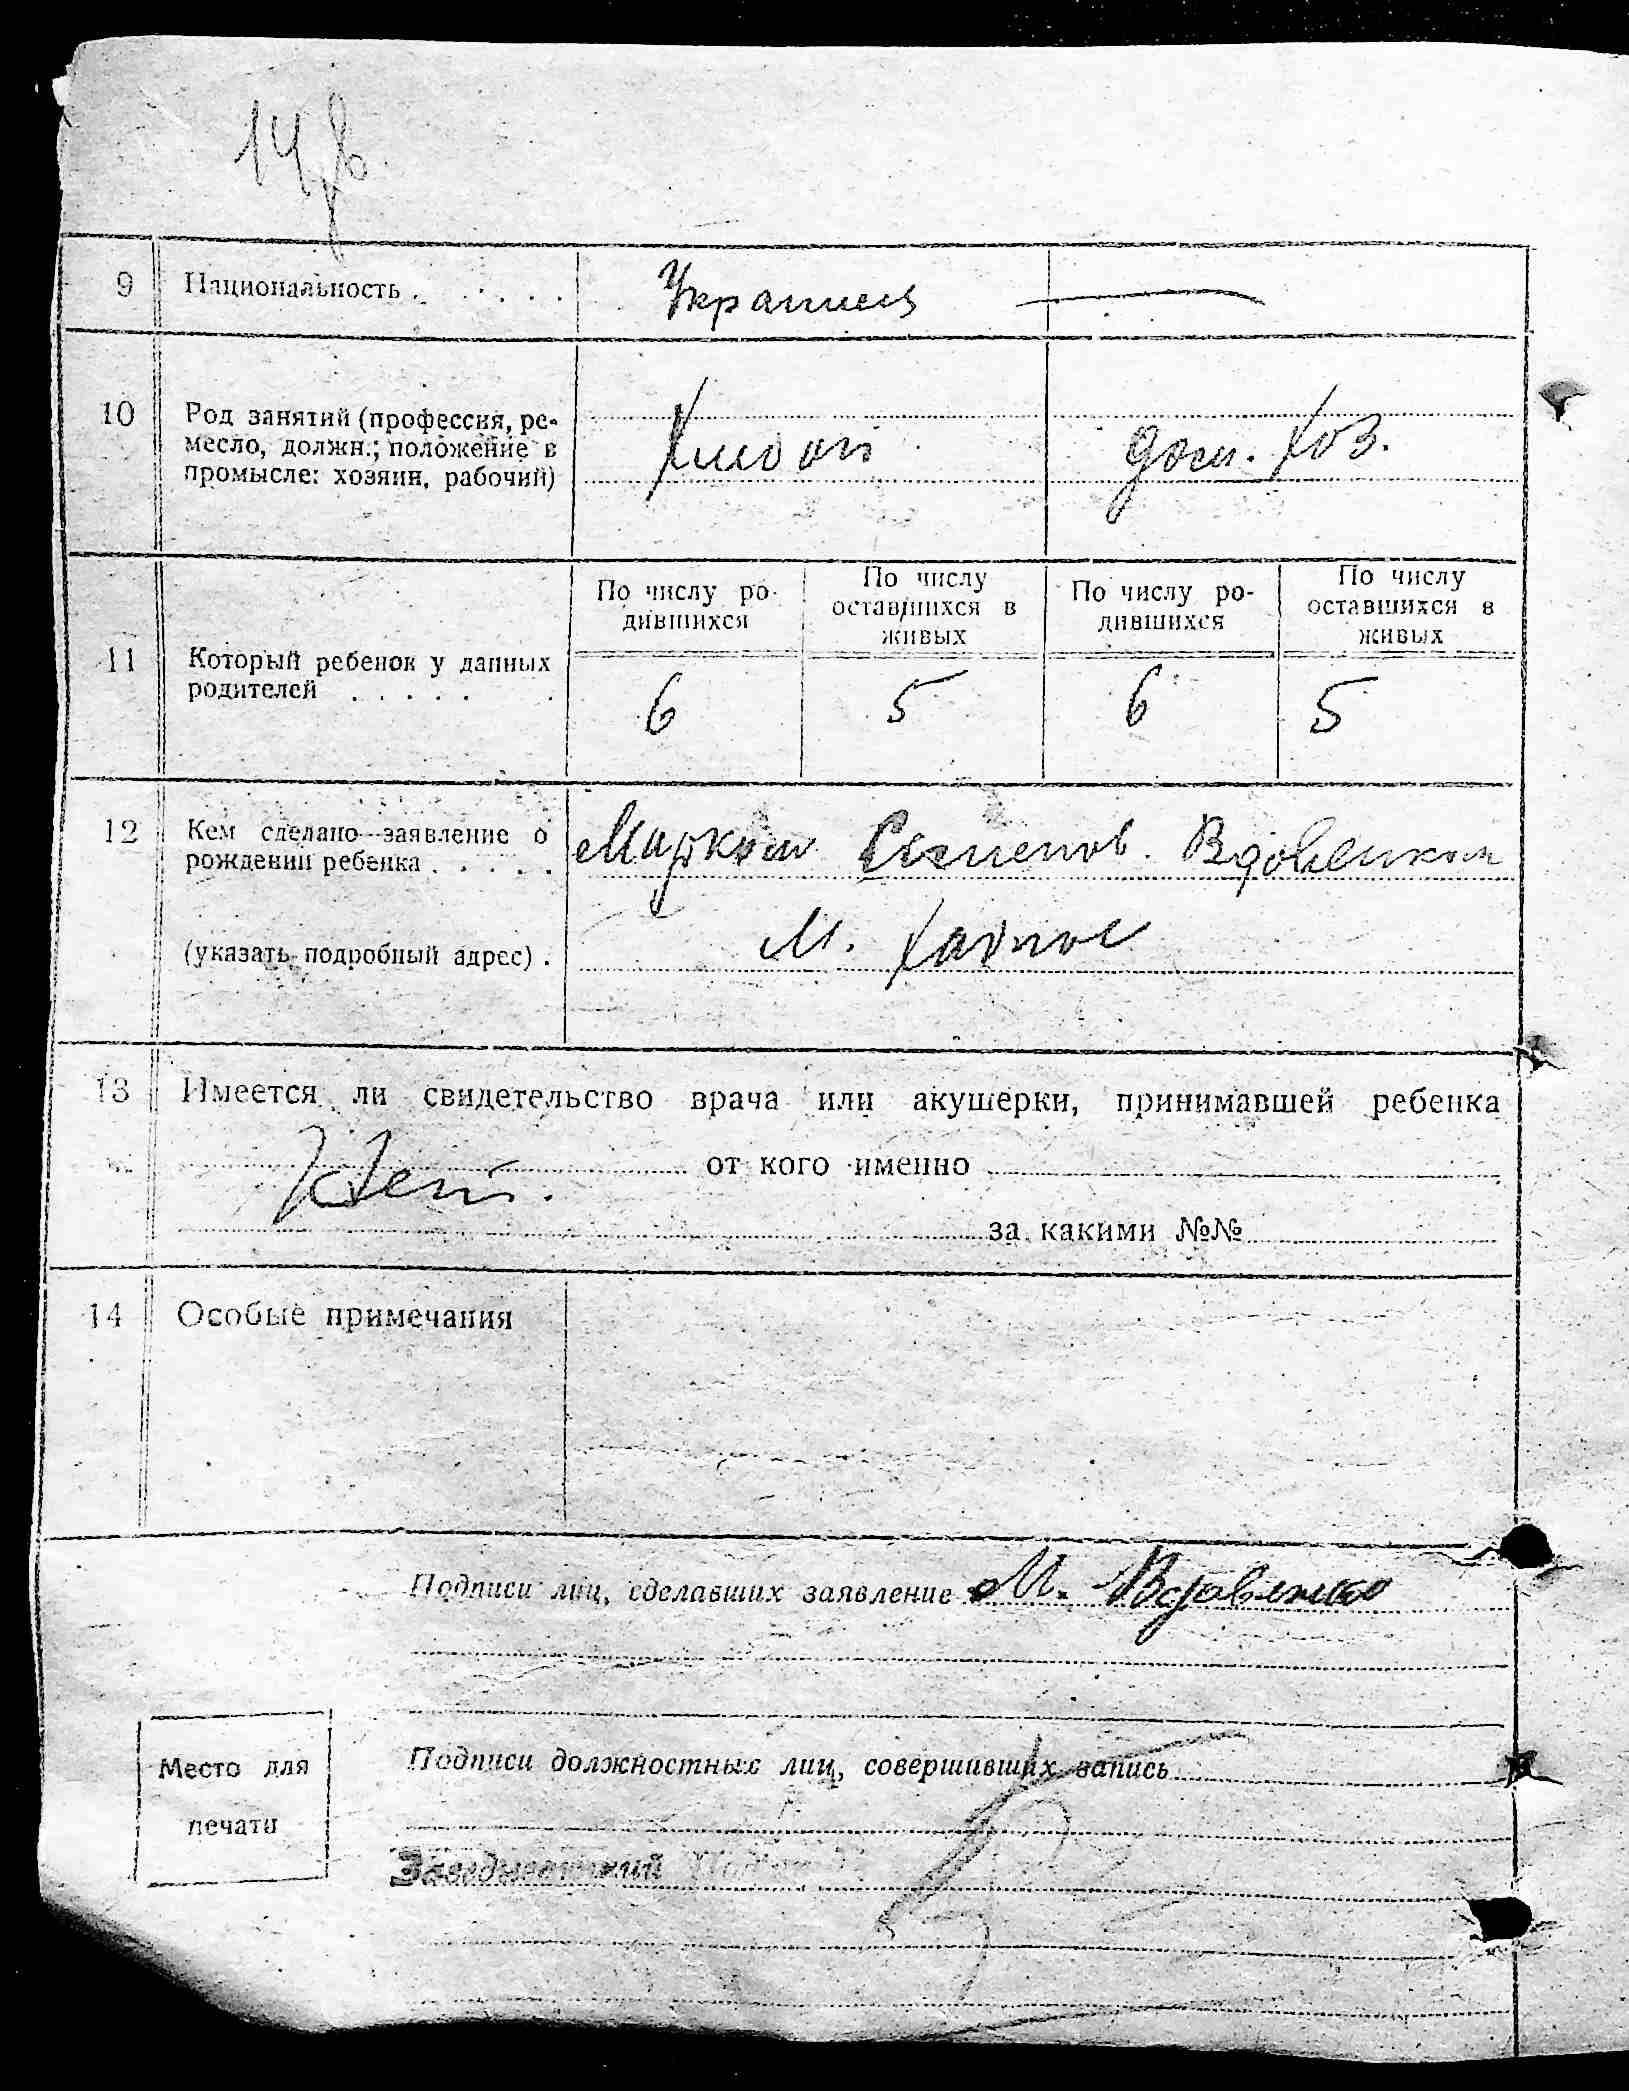 9 Национальность . . . . . Украинец —
10 Род занятий (профессия, ре-
месло, должн.; положение в
промысле: хозяин, рабочий)
Хлебоп дом. хоз.
По числу ро-
дившихся
По числу
оставшихся в
живых
По числу ро-
дившихся
По числу
оставшихся в
живых
11 Который ребенок у данных
родителей . . . . . .
6 5 6 5
12 Кем сделано заявление о
рождении ребенка . . . . .
Марком Семенов. Вдовенком
(указать подробный адрес) . М. Хабное
13 Имеется ли свидетельство врача или акушерки, принимавшей ребенка
Нет. от кого именно
за какими №№
14 Особые примечания
Подписи лиц, сделавших заявление М. Вдовенко
Подписи должностных лиц, совершивших запись
Место для
печати
Заведывающий